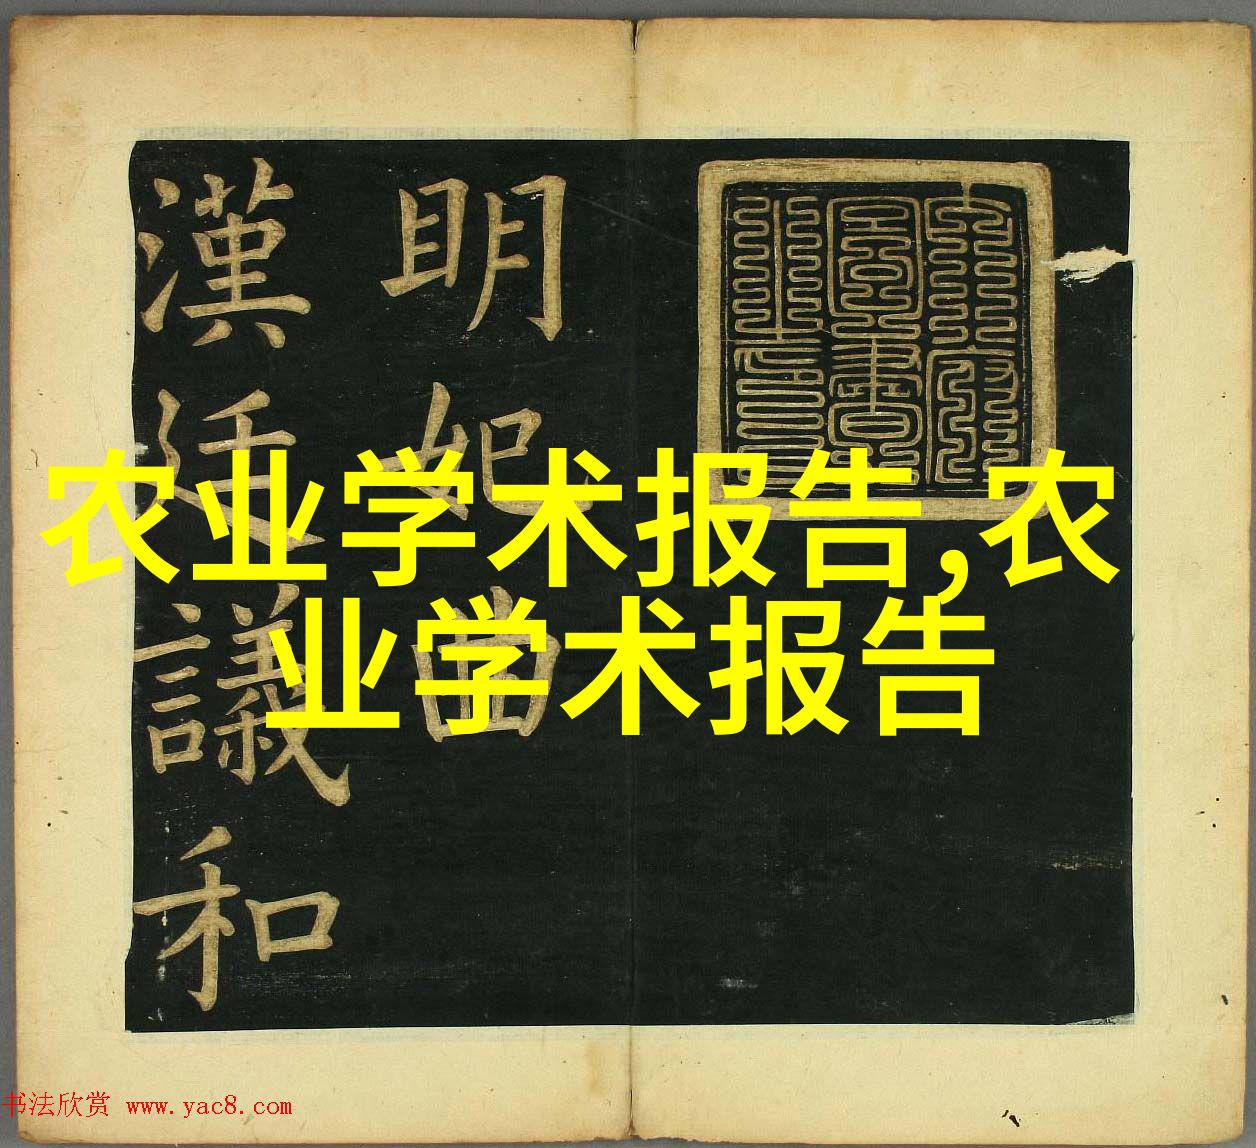 明妃曲
漢廷議和
农业学术报告,农
业学术报告
书法欣赏 www.yac8.com